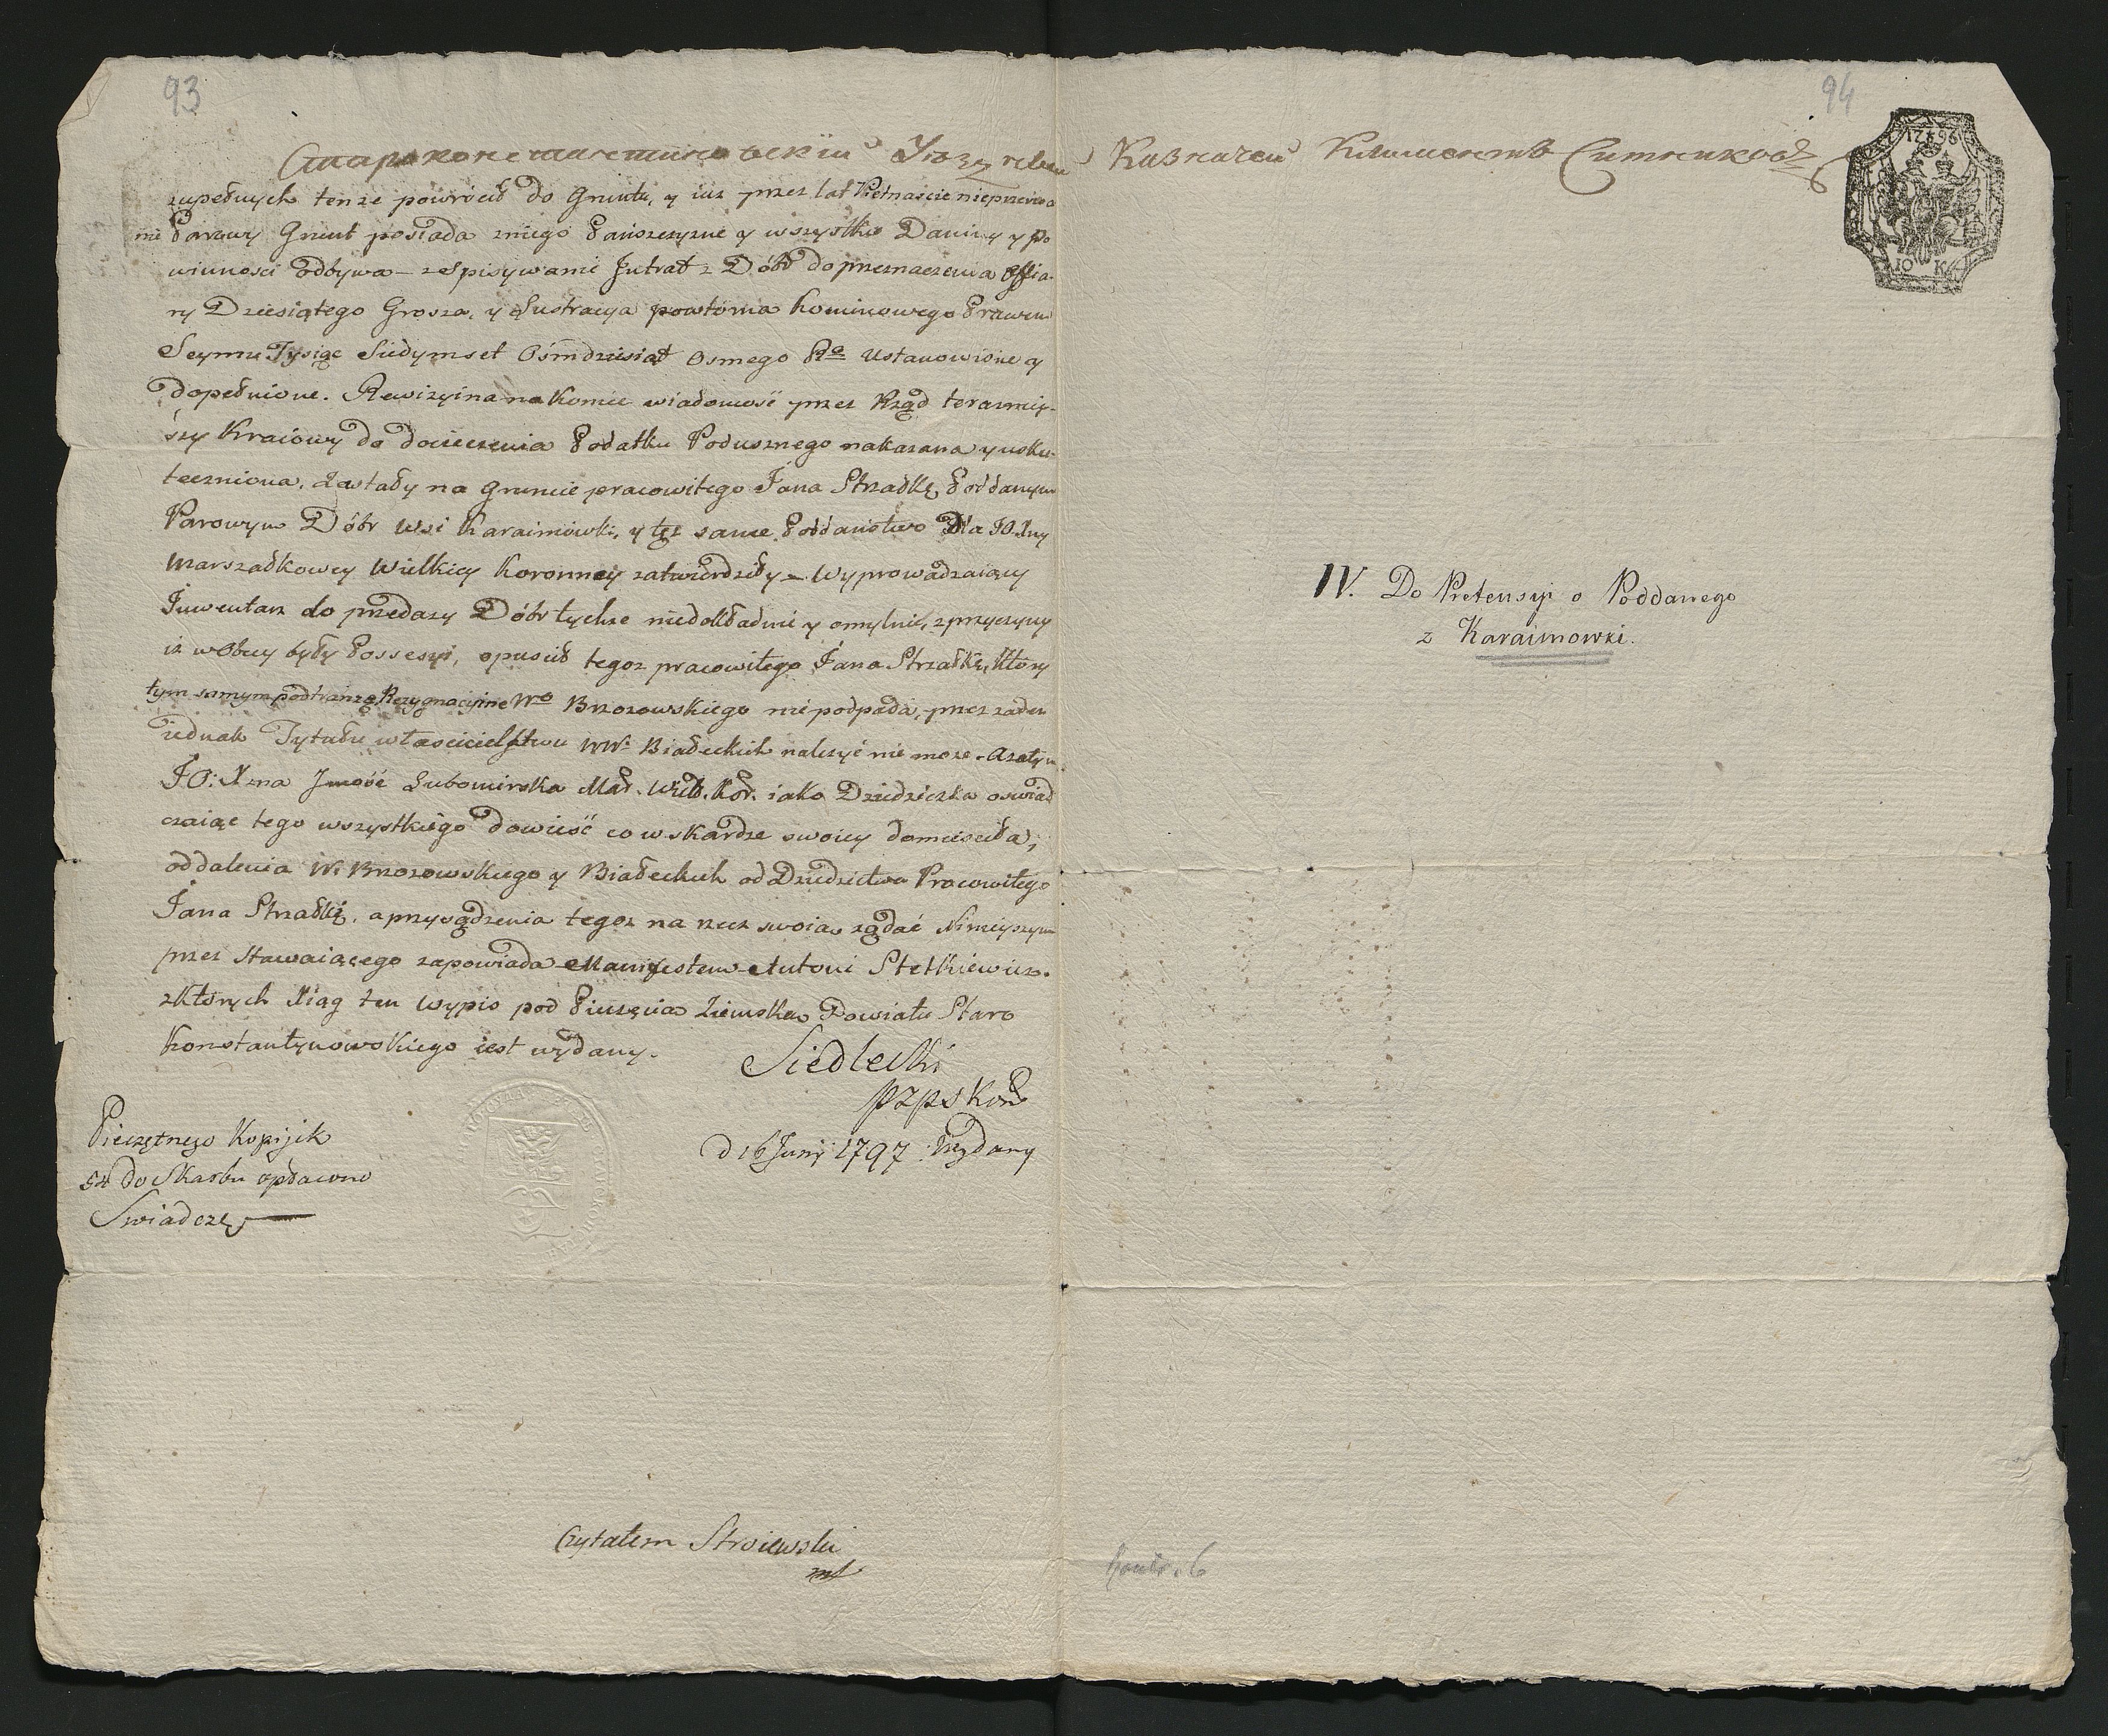 93
Староконстантиновский Уездный Казначей Климентъ
zupełnych tenze powrócił do Gruntu, y iuz przez lat Piętnaście nieprzerwa
nie Parowy Grunt posiada zniego Pańszczyznę y wszystkie Daniny y po
winnosci odbywa – zaspisywanie Jntrat z Dóbr do przeznaczenia Offia-
ry Dziesiątego Grosza, y Lustracya powtorna kominowego Prawem
Seymu Tysiąc Siedymset Ośmdziesiąt Osmego Rº Ustanowione y
dopełnione. Rewizyina na koniec wiadomość przez Rząd terazniey-
szy Kraiowy do docieczenia Podatku Podusznego nakazana y usku-
teczniona, zastały na Gruncie pracowitego Jana Strzałkę Poddanym
Parowym Dóbr wsi Karaimówki, y tęż same Poddaństwo Dla JO. Xny
Marszałkowey Wielkiey Koronney zatwierdziły – Wyprowadzaiący
Juwentarz do przedazy Dóbr tychze niedokładnie y omylnie, zprzyczyny
iz wobcey były Possesyi, opuscił tegoz pracowitego Jana Strzałkę, który
tym samym pod tranzę Rezygnacyine Wº Brzozowskiego nie podpada, przez zaden
iednak Tytułu własciciel/stwu WW. Białeckich nalezyć nie moze – Azatym
JO: Xzna Jmość Lubomirska Mar. Wiel. Kor. iako Dziedziczka oswiad
czaiąc tego wszystkiego dowieść co w skardze swoiey domiesciła,
oddalenia W. Brzozowskiego y Białeckich od Dziedzictwa Pracowitego
Jana Strzałki, a przysądzenia tegoz na rzecz swoia ządać Ninieyszym
przez Stawaiącego zapowiada Manifestem – Antoni Stetkiewicz.
zktórych Xiąg ten Wypis pod Pieczęcia Ziemska Powiatu Staro
Konstantynowskiego iest wydany.
Siedlecki
PZPSKon
D 16 Junij 1797 Wydany
Pieczętnego Kopijek
54 do Skarbu opłacono
Swiadczę
Czytałem Stroiewski
94
1796
10 K
IV. Do Pretensyi o Poddanego
z Karaimowki.